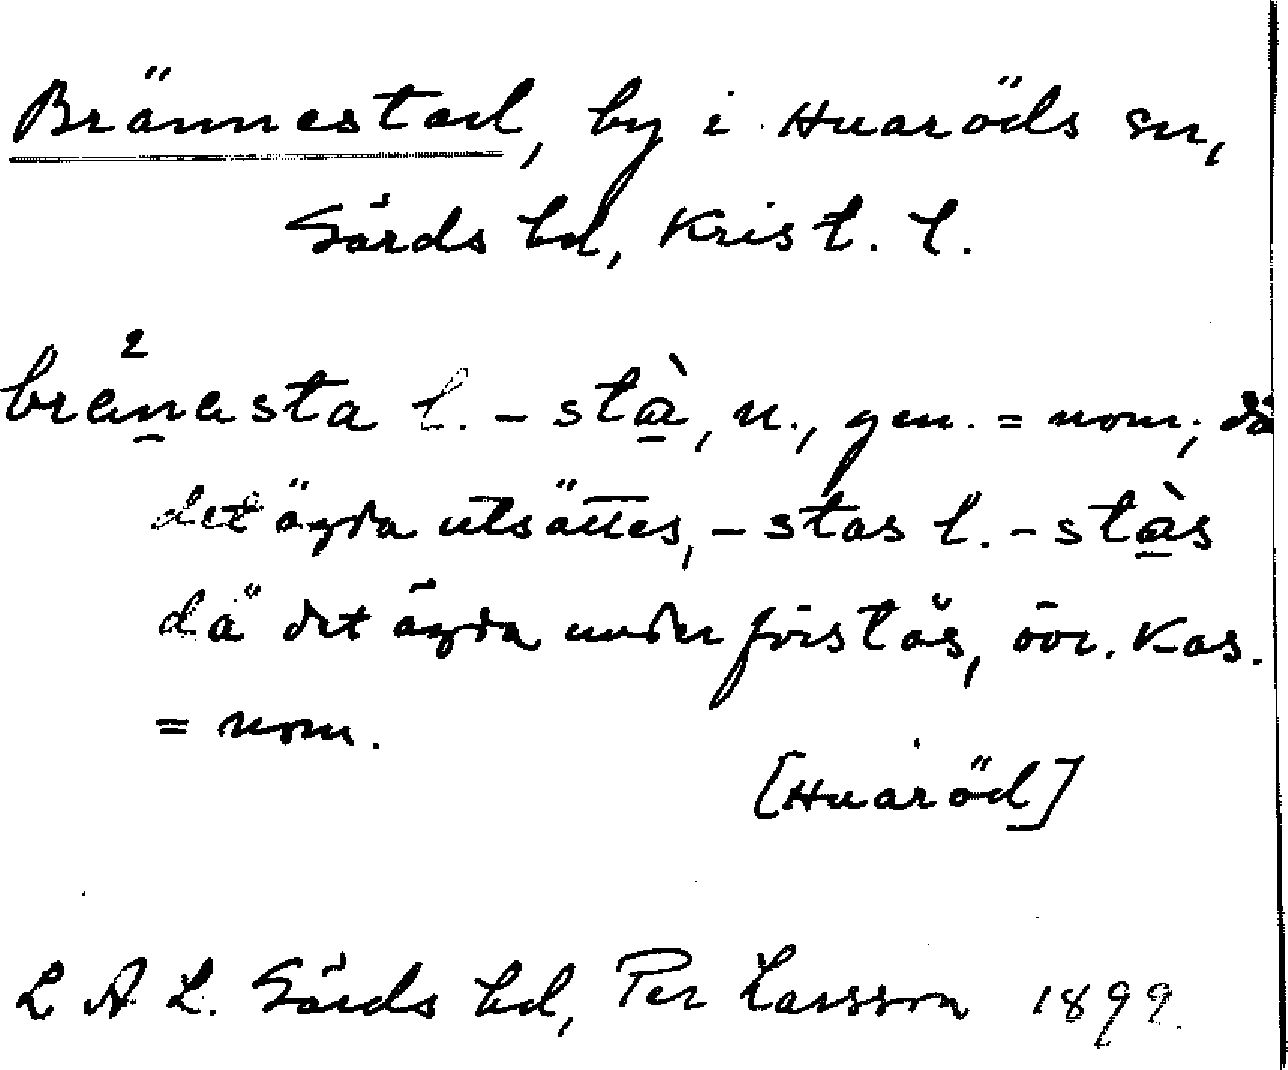 Brännestad, by i Huaröds sn,
Gärds hd, Krist. l.
bränasta l. - stà, n., gen. = nom, då
det ägda utsättes, - stas l. - stàs
då det ägda underförstås, övr. Kas.
= nom.
[Huaröd]
L A L. Gärds hd, Per Larsson 1899.